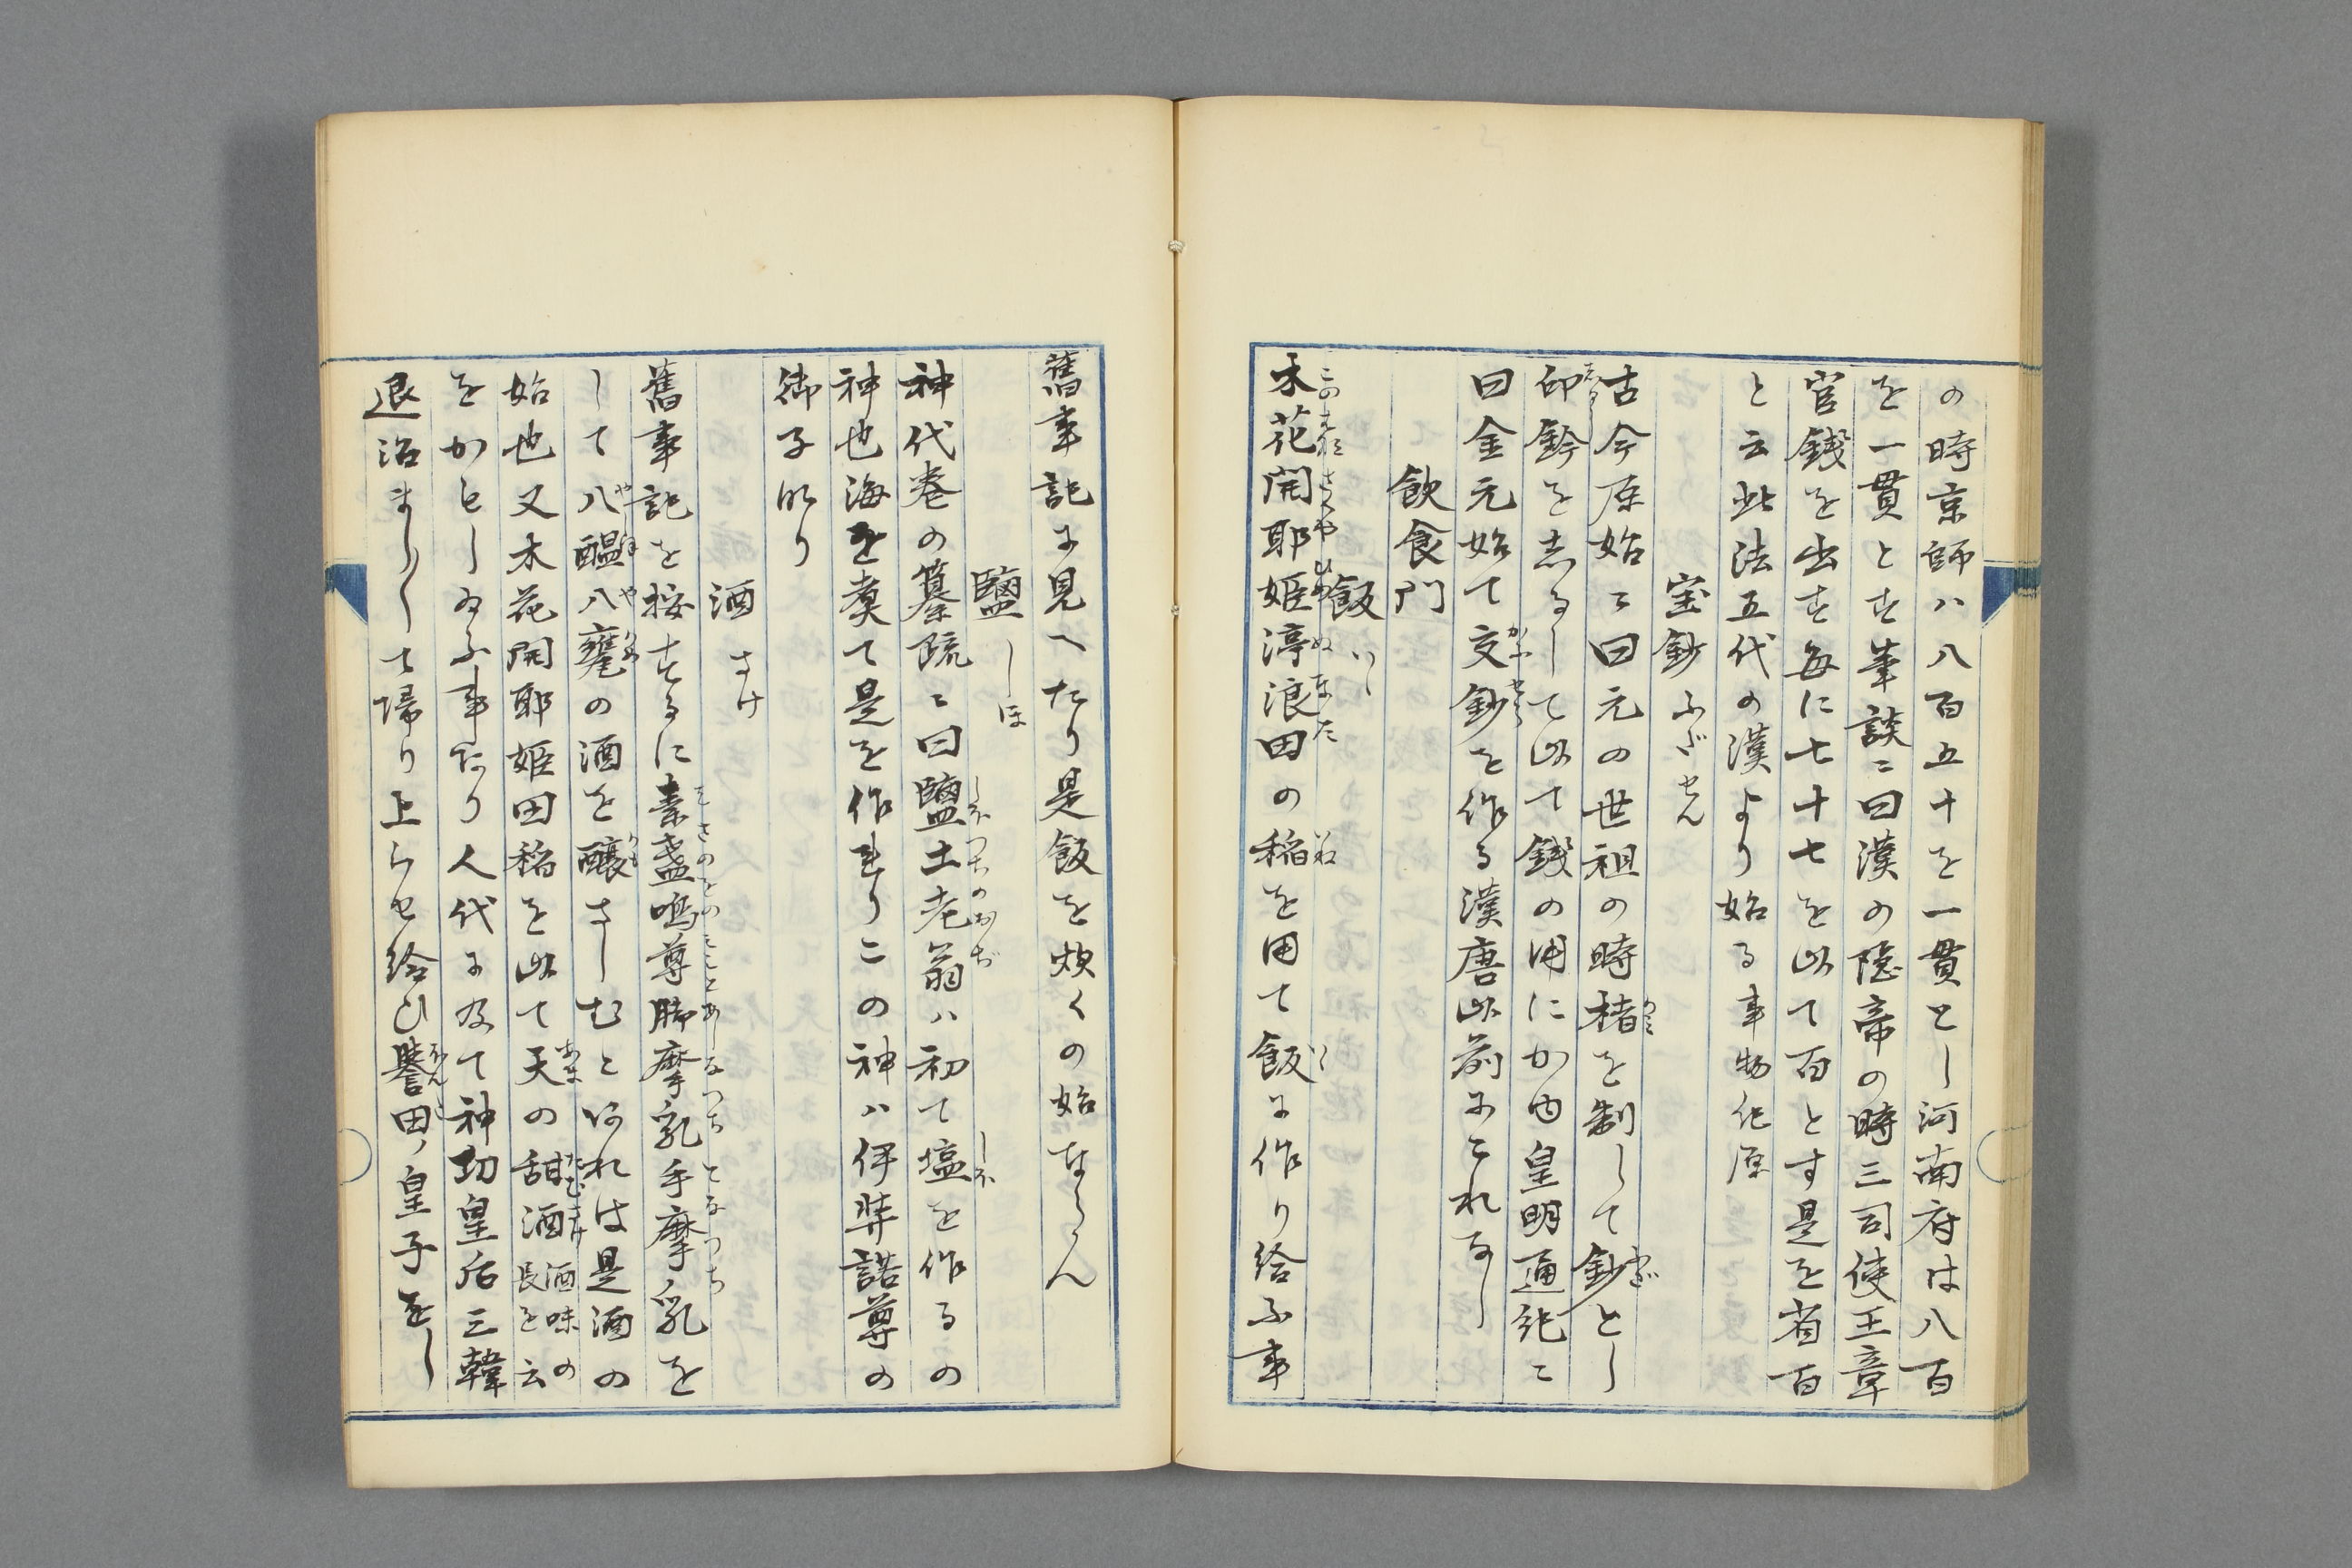 の時京師ハ八百五十を一貫とし河南府は八百
を一貫とす筆談ニ曰漢の隠帝の時三司使王章
官銭を出す毎に七十七を以て百とす是を省百
と云此法五代の漢より始る事物紀原
宝鈔ふだせん
古今原始ニ曰元の世祖の時楮を制して鈔とし
印鈐をしるして以て銭の用にかゆ皇明通紀ニ
曰金元始て交鈔を作る漢唐以前にこれなし
飲食門
飯いゝ
木花開耶姫渟浪田の稲を用て飯に作り給ふ事
舊事記に見へたり是飯を炊くの始ならん
鹽しほ
神代巻の纂疏ニ曰鹽土老翁ハ初て塩を作るの
神也海を煑て是を作れりこの神ハ伊弉諾尊の
御子なり
酒さけ
舊事記を按するに素盞嗚尊脚摩乳手摩乳を
して八醞八甕の酒を醸さしむとあれは是酒の
始也又木花開耶姫田稲を以て天の甜酒酒味の長を云
をかもし給ふ事あり人代に及て神功皇后三韓
退治まし〱て帰り上らせ給ひ譽田ノ皇子をし